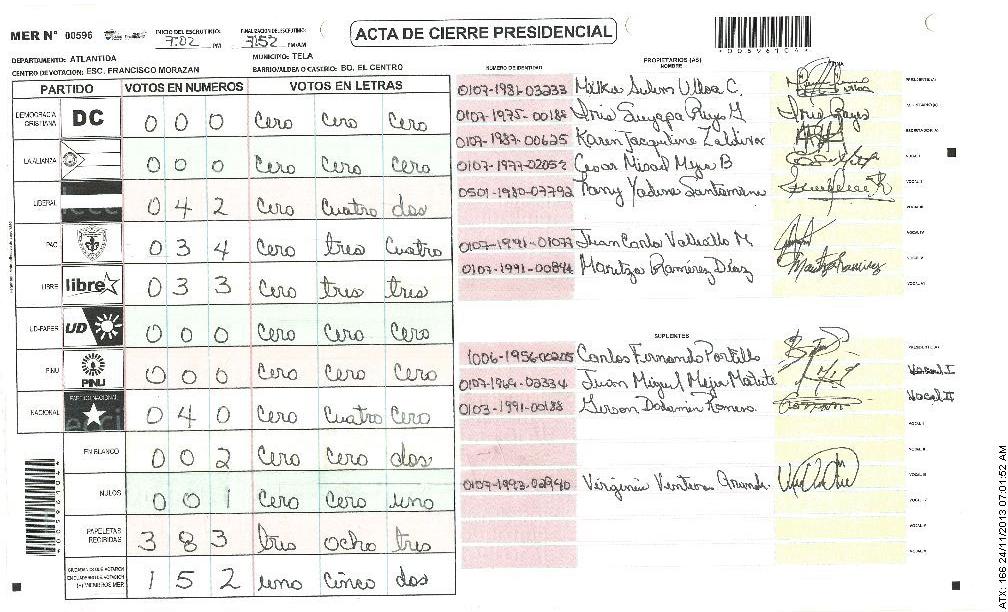 MER N° 00596
INICIO DEL ESCRUTINIO: 7:02 PM
FINALIZACION DE ESCRUTINIO: 7:52 PM/AM
ACTA DE CIERRE PRESIDENCIAL
DEPARTAMENTO: ATLANTIDA
MUNICIPIO: TELA
CENTRO DE VOTACION: ESC. FRANCISCO MORAZAN
BARRIO/ALDEA O CASERIO: BO. EL CENTRO
PARTIDO VOTOS EN NUMEROS VOTOS EN LETRAS
DEMOCRACIA CRISTIANA DC 0 0 0 Cero Cero Cero
LA ALIANZA 0 0 0 Cero Cero Cero
LIBERAL 0 4 2 Cero Cuatro dos
PAC 0 3 4 Cero tres Cuatro
LIBRE libre 0 3 3 Cero tres tres
UD-FAPER UD 0 0 0 Cero Cero Cero
PINU PINU 0 0 0 Cero Cero Cero
NACIONAL PARTIDO NACIONAL 0 4 0 Cero Cuatro Cero
EN BLANCO 0 0 2 Cero Cero dos
NULOS 0 0 1 Cero Cero uno
PAPELETAS RECIBIDAS 3 8 3 tres ocho tres
CIUDADANOS QUE VOTARON 1 5 2 uno Cinco dos
NUMERO DE IDENTIDAD
PROPIETARIOS (AS)
NOMBRE
FIRMA
0107-1981-03233 Milka Ulloa C. PRESIDENTE(A)
0107-1975-00188 Iris Suyapa Reyes Iris Reyes
0107-1987-00625 Karen Jacqueline Zaldivar SECRETARIO(A)
0107-1977-02052 Cesar Mejia B VOCAL I
0501-1980-07792 Santamaria VOCAL II
VOCAL III
0107-1991-01077 Juan Carlo M. VOCAL IV
0107-1991-00894 Maritza Ramirez Díaz Maritza Ramirez VOCAL V
VOCAL VI
SUPLENTES
1006-1956-00205 Carlos Fernando Portillo PRESIDENTE(A)
0107-1969-02334 Juan Miguel Mejia Matute Vocal I
0103-1991-00188 Gerson Romero Vocal II
VOCAL I
VOCAL II
0107-1993-02940 Virginia Ventura VOCAL III
VOCAL IV
VOCAL V
VOCAL VI
ATX: 166 24/11/2013 07:01:52 AM